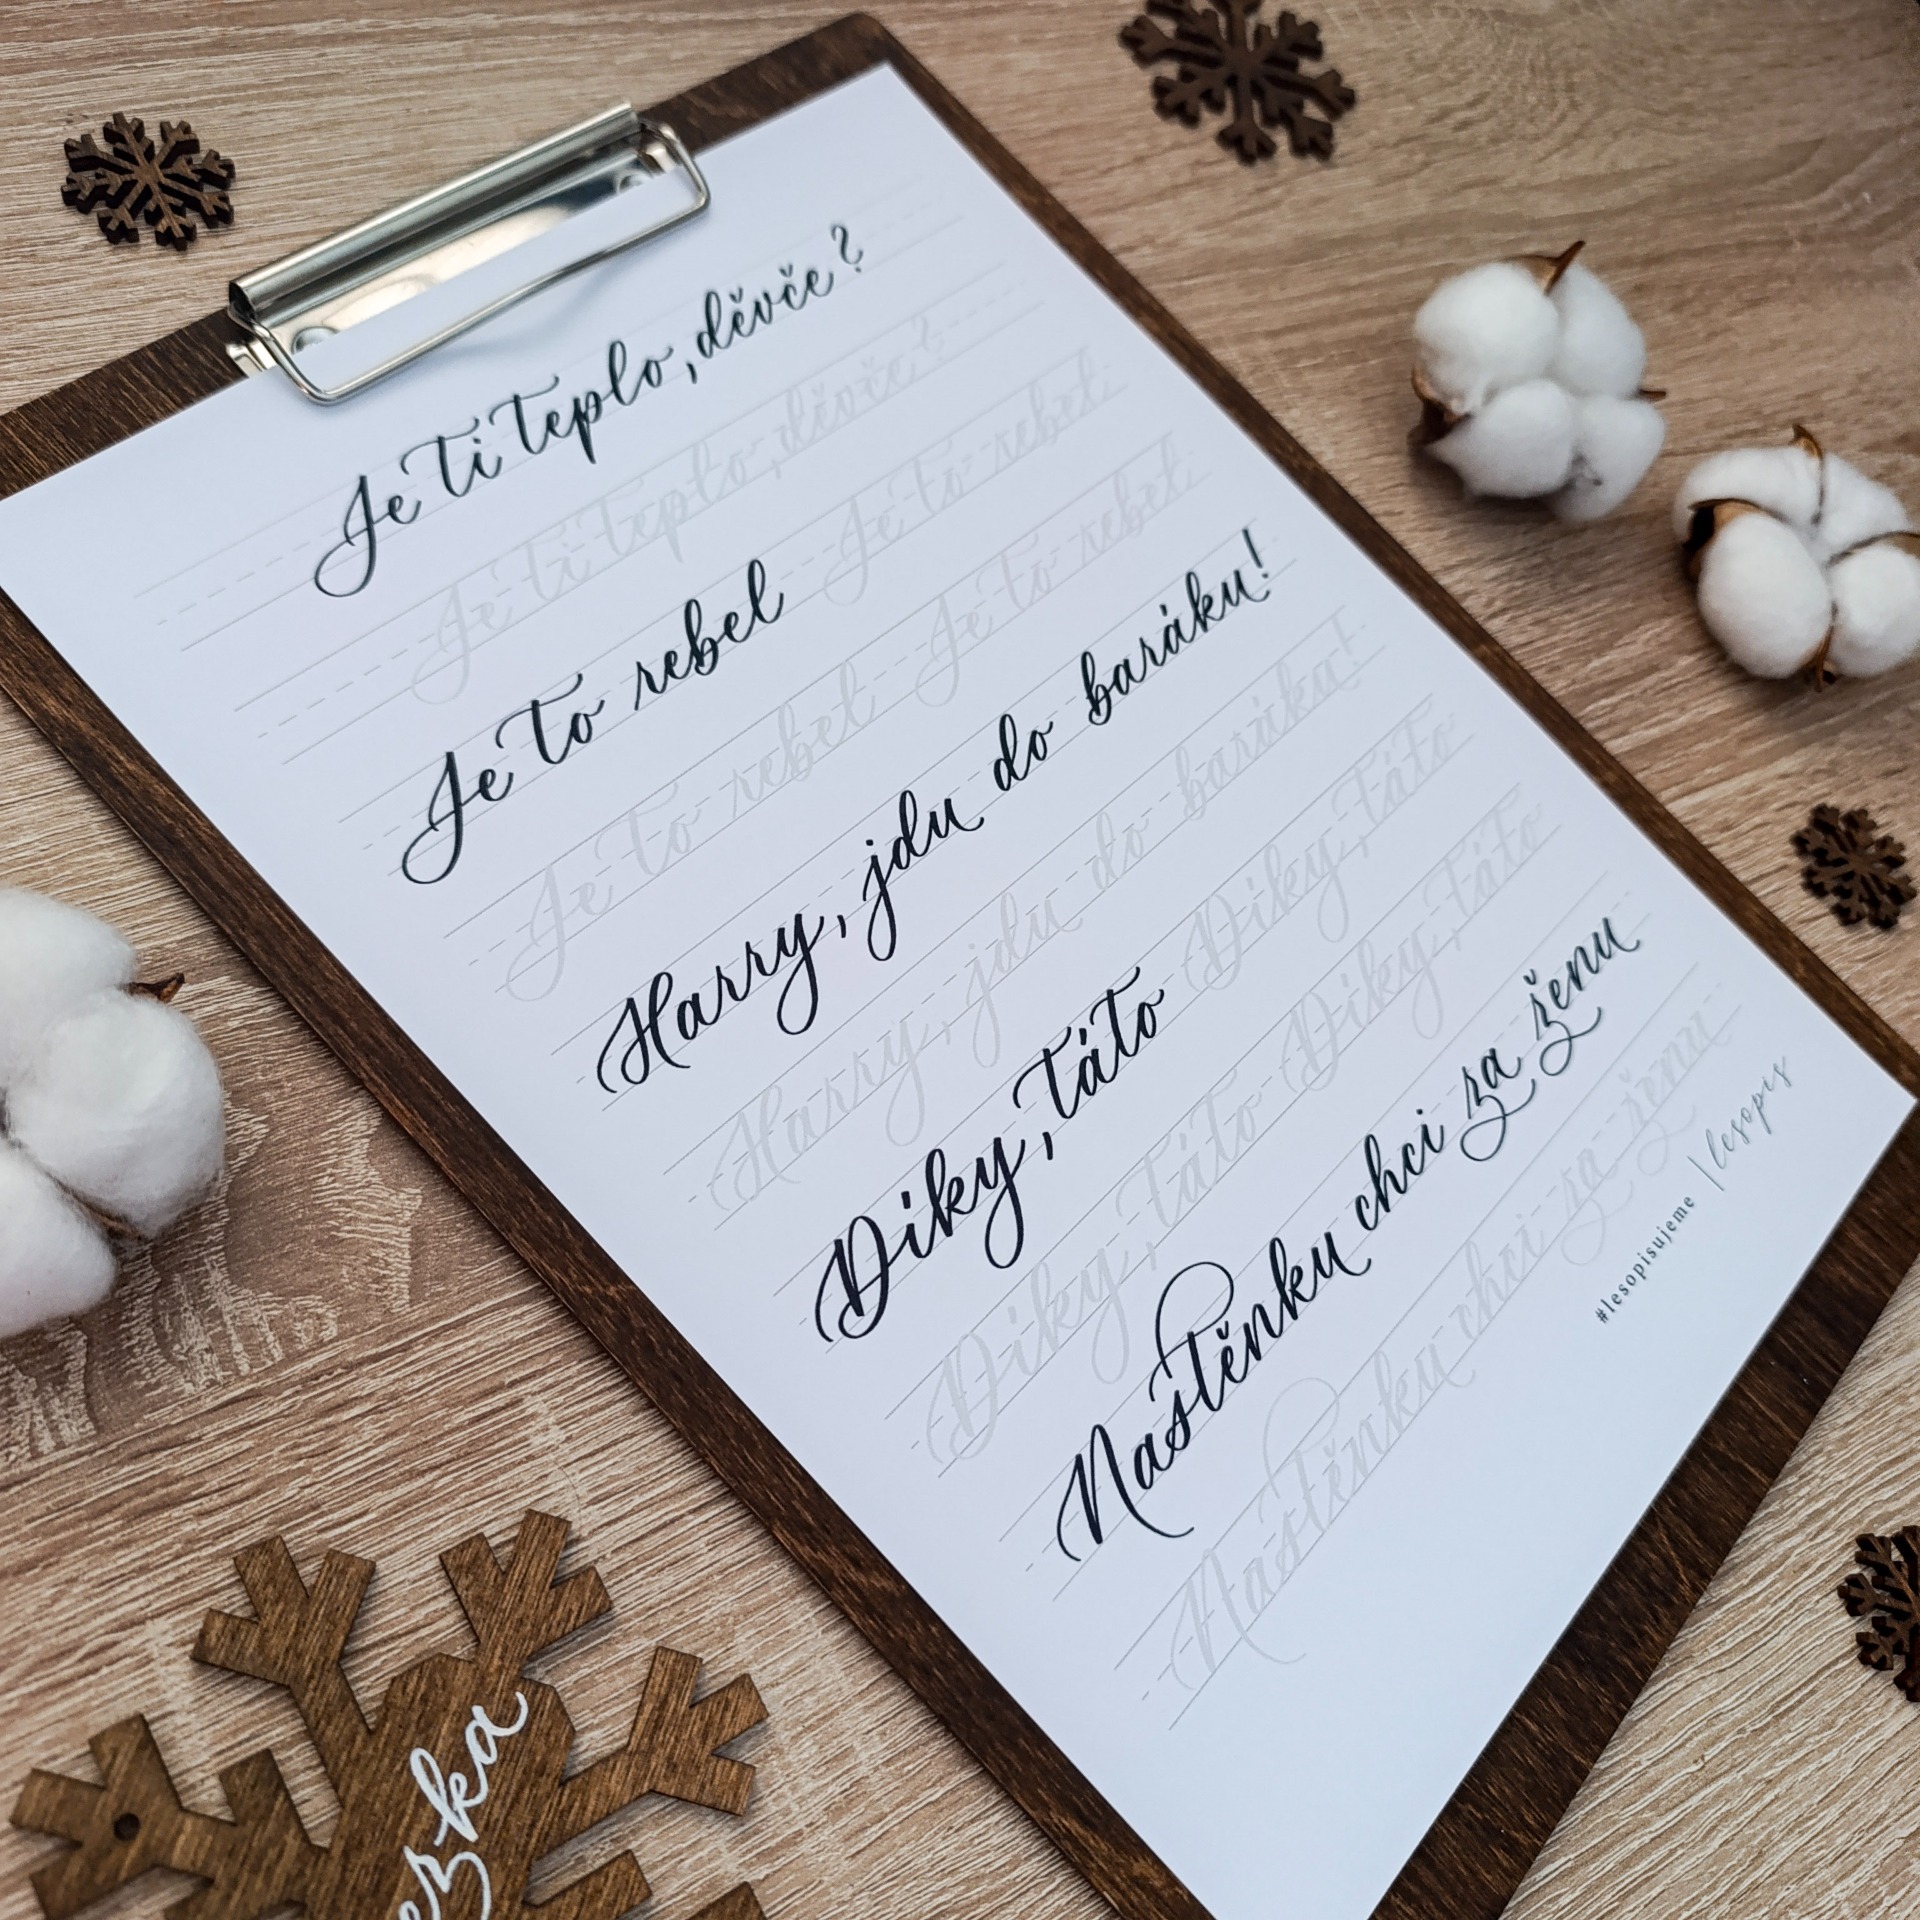 Je ti teplo, děvče?
Je ti teplo, děvče?
Je to rebel Je to rebel
Je to rebel Je to rebel
Harry, jdu do baráku!
Harry, jdu do baráku!
Díky, táto Díky, táto
Díky, táto Díky, táto
Nastěnku chci za ženu
Nastěnku chci za ženu
#lesopisujeme | lesopis
ezka